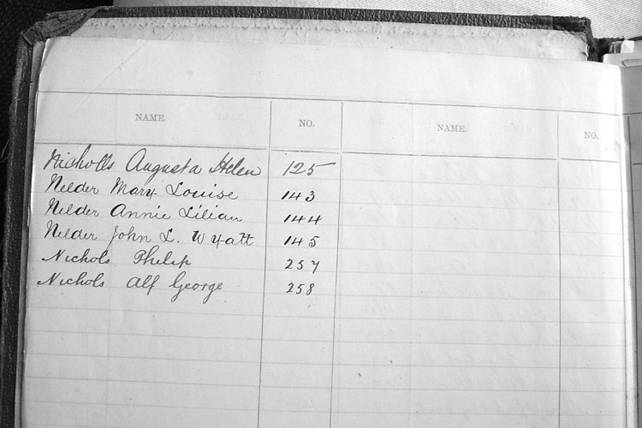 NAME. NO. NAME. NO.
Nicholls Augusta Helen 125
Nelder Mary Louise 143
Nelder Annie Lilian 144
Nelder John L. Wyatt 145
Nichols Philip 257
Nichols Alf George 258